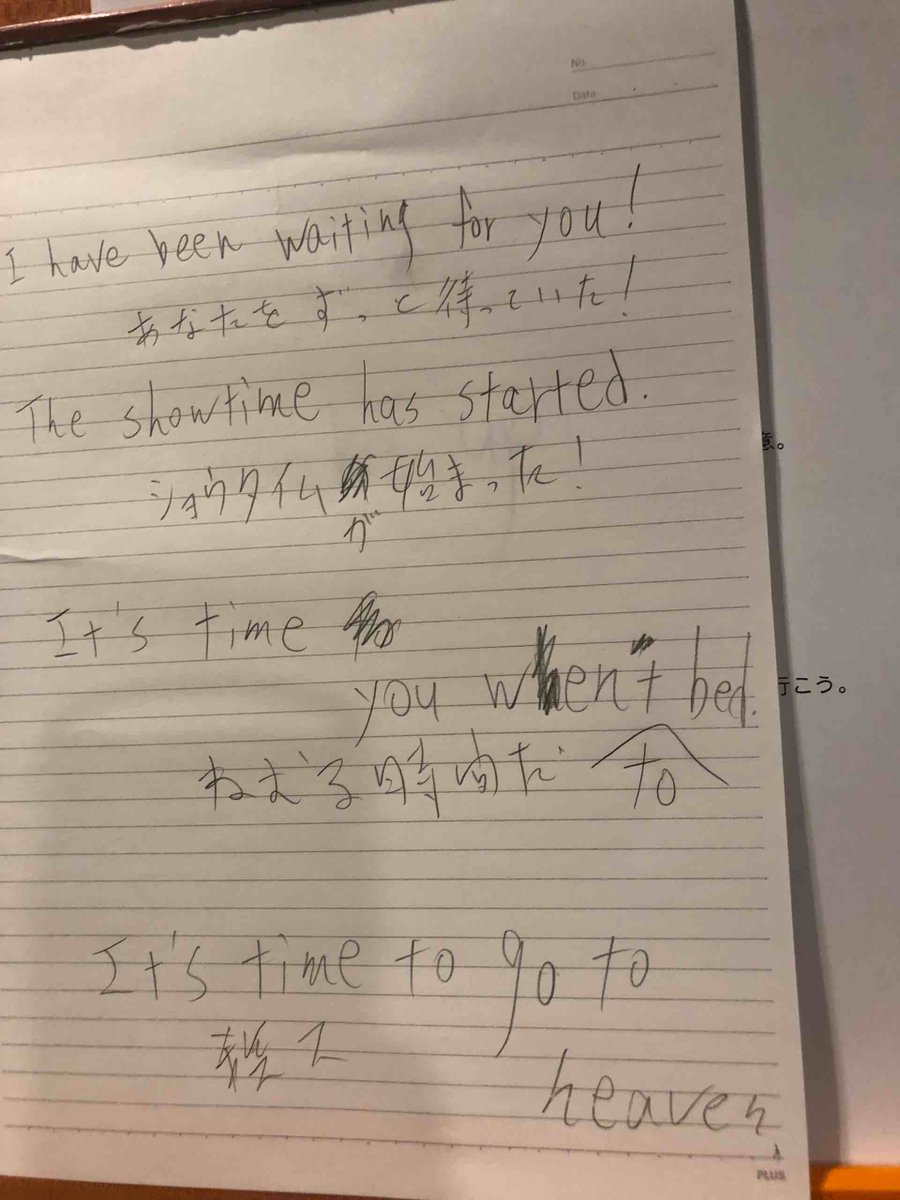 No
Date
I have been waiting for you!
あなたをずっと待っていた!
The showtime has started.
ショウタイム始まった!
が
意。
It's time
you went bed.
行こう。
ねむる時間だ
to
It's time to go to
heaven
PLUS